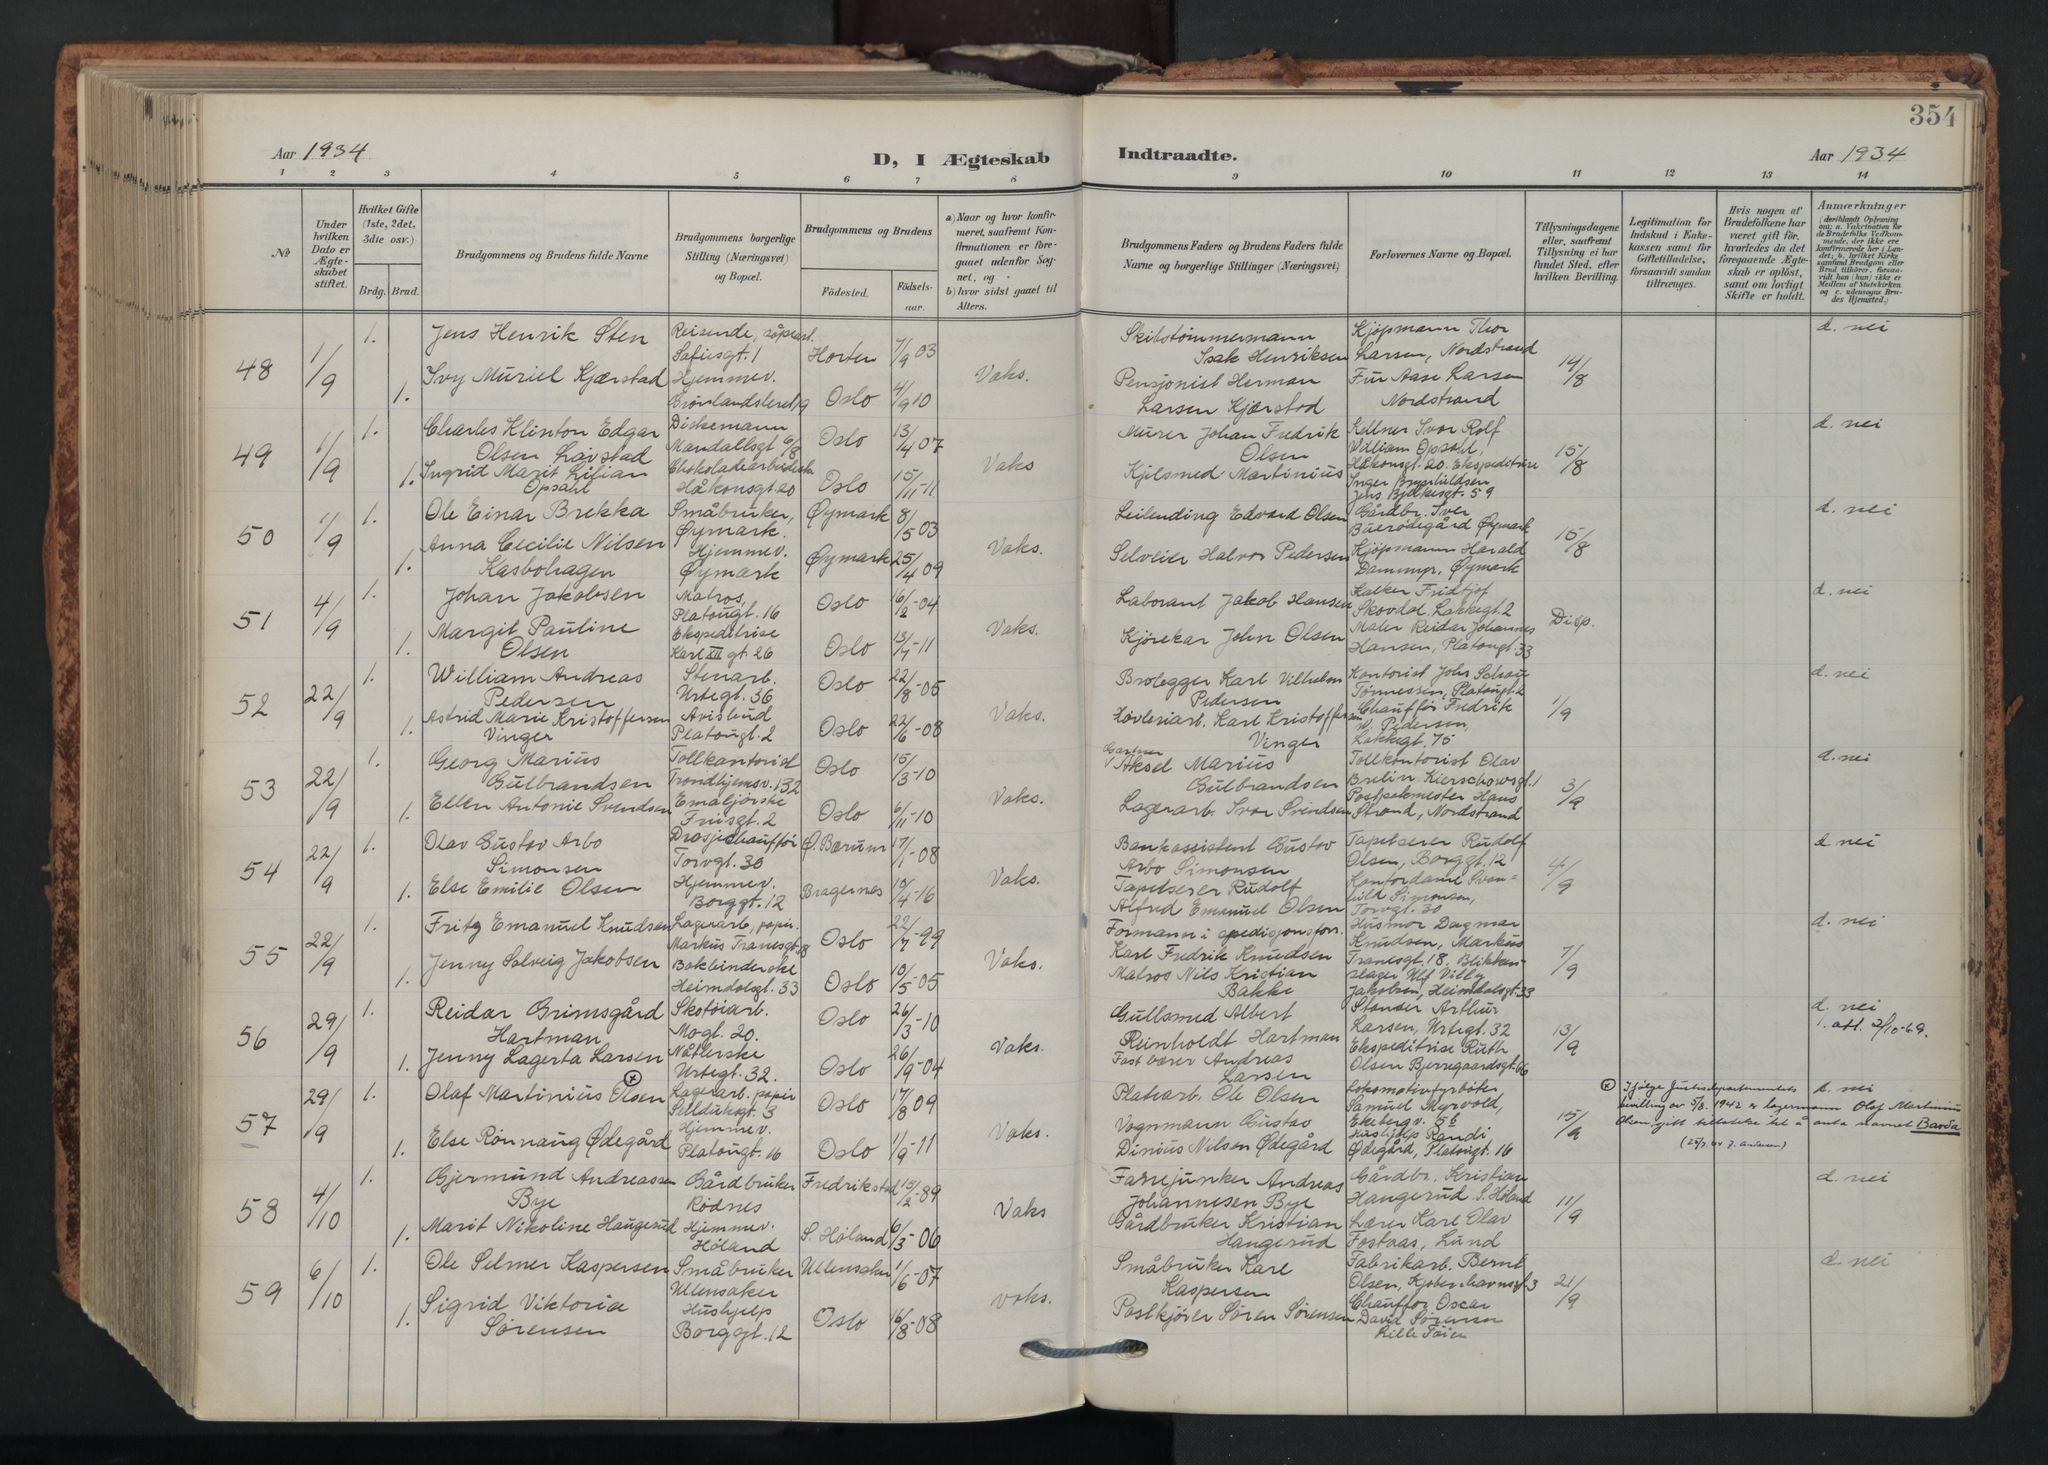 354
Aar 1934 D, I Ægteskab Indtraadte. Aar 1934
1 2 3 4 5 6 7 8 9 10 11 12 13 14
No
Under hvilken Dato er Ægteskabet stiftet.
Hvilket Gifte (1ste, 2det, 3die osv.)
Brdg. Brud.
Brudgommens og Brudens fulde Navne
Brudgommens borgerlige Stilling (Næringsvei) og Bopæl.
Brudgommens og Brudens
Fødested. Fødselsaar.
a) Naar og hvor konfirmeret, saafremt Konfirmationen er foregaaet udenfor Sognet, og
b) hvor sidst gaaet til Alters.
Brudgommens Faders og Brudens Faders fulde Navne og borgerlige Stillinger (Næringsvei)
Forlovernes Navne og Bopæl.
Tillysningsdagene eller, saafremt Tillysning ei har fundet Sted, efter hvilken Bevilling.
Legitimation for Indskud i Enkekassen samt for Giftetilladelse, forsaavidt saadan tiltrænges.
Hvis nogen af Brudefolkene har været gift før, hvorledes da det foregaaende Ægteskab er opløst, samt om lovligt Skifte er holdt.
Anmærkninger
(deriblandt Oplysning om: a. Vakcination for de Brudefolks Vedkommende, der ikke ere konfirmerede her i Landet; b. hvilket Kirkesamfund Brudgom eller Brud tilhører, forsaavidt han (hun) ikke er Medlem af Statskirken og c. udensogns Brudes Hjemsted.)
48 1/9 1. Jens Henrik Sten Reisende, Sofiesgt. 1 Horten 7/9 03 Skibstømmermann Isak Henriksen Kjøpmann Thor Larsen, Nordstrand 14/8 d. nei
1. Ivy Muriel Kjærstad Hjemmev. Grønlandsleret 19 Oslo 4/9 10 Vaks. Pensjonist Herman Larsen Kjærstad Fru Aase Larsen Nordstrand
49 1/9 1. Charles Klinton Edgar Olsen Lavstad Diskemann Mandallsgt. 6/8 Oslo 13/4 07 Murer Johan Fredrik Olsen Kellner Ivar Rolf William Opsahl, 15/8 d. nei
1. Ingrid Marit Lilian Opsahl Oslo 15/11-11 Vaks Kjelsmed Martinius Håkonsgt. 20. Ekspeditrise Inger Jens Bjelkesgt. 59
Håkonsgt. 20
50 1/9 1. Ole Einar Brekka Småbruker, Øymark. Øymark 8/5 03 Leilending Edvard Olsen Gårdbr. Iver Buerødegård Øymark 15/8 d. nei
1. Anna Cecilie Nilsen Kasbohagen Hjemmev. Øymark Øymark 25/4 09 Vaks. Selveier Halvor Pedersen Kjøpmann Harald Øymark
51 4/9 1. Johan Jakobsen Matros, Platougt. 16 Oslo 16/2-04 Laborant Jakob Hansen Fridtjof Skovdal Lakkegt. 2 Disp. d. nei
1. Margit Pauline Olsen Ekspeditrise Karl XII gt. 26 Oslo 13/7-11 Vaks. Kjørekar John Olsen Maler Reidar Johannes Hansen, Platougt. 33
52 22/9 1. William Andreas Pedersen Stenarb. Urtegt. 36 Oslo 22/8-05 Brolegger Karl Vilhelm Pedersen Kontorist John Tønnessen, Platougt. 2 1/9 d. nei
1. Astrid Marie Kristoffersen Vinger Avisbud Platougt. 2 Oslo 22/6-08 Vaks. Høvleriarb. Karl Kristoffersen Vinger Chauffør Fredrik W. Pedersen, Lakkegt. 75
53 22/9 1. Georg Marius Gulbrandsen Tollkantorist Trondhjemsv. 132 Oslo 15/3-10 Gartner Aksel Marius Gulbrandsen Tollkontorist Olav Brelin, Kierschowsgt. 1 3/9 d. nei
1. Ellen Antonie Svendsen Friisgt. 2 Oslo 6/11-10 Vaks. Lagerarb. Ivar Svendsen Postpakmester Hans Strand, Nordstrand
54 22/9 1. Olav Gustav Arbo Simonsen Drosjechauffør Torvgt. 30 Ø. Bærum 17/1-08 Bankassistent Gustav Arbo Simonsen Tapetserer Rudolf Olsen, Borggt. 12 4/9 d. nei
1. Else Emilie Olsen Hjemmev. Borggt. 12 Bragernes 10/4-16 Vaks. Tapetserer Rudolf Alfred Emanuel Olsen Kontordame Svanhild Simonsen, Torvgt. 30
55 22/9 1. Fritz Emanuel Knudsen Lagerarb, papir. Markus Tranesgt. 18 Oslo 22/7-99 Formann i spedisjonsforr. Karl Fredrik Knudsen Husmor Dagmar Knudsen, Markus Tranesgt. 18, 7/9 d. nei
1. Jenny Solveig Jakobsen Bokbinderske Heimdalsgt. 33 Oslo 10/5-05 Vaks. Matros Nils Kristian Bakke Blikkenslager Ulf Villy Jakobsen, Heimdalsgt. 33
56 29/9 1. Reidar Grimsgård Hartman Skotøiarb. Mogt. 20. Oslo 26/3-10 Gullsmed Albert Reinholdt Hartman Stanser Arthur Larsen, Urtegt. 32 13/9 d. nei
1. att. 2/10-69.
1. Jenny Lagerta Larsen Nåtlerske Urtegt. 32. Oslo 26/9-04 Vaks. Fastbærer Andreas Larsen Ekspeditrise Ruth Olsen Bjerregaardsgt. 66
57 29/9 1. Olaf Martinius Olsen Lagerarb. papir Selduksgt. 3 Oslo 17/8 09 Platearb. Ole Olsen Lokomotivfyrbøter Samuel Myrvold, Ekebergv. 56 15/9 d. nei
Ifølge Justisdepartementets bevilling av 5/8 1942 er lagermann Olaf Martinius Olsen gitt tillatelse til å anta navnet Barda
1. Else Rønnaug Ødegård Hjemmev. Platougt. 16 Oslo 1/9-11 Vaks. Vognmann Gustav Dinius Nilsen Ødegård Hushjelp Randi Ødegård, Platougt. 16
58 4/10 1. Gjermund Andreassen Bye Gårdbruker Rødnes Fredrikstad 15/2-89 Farrejunker Andreas Johannesen Bye Gårdbr. Kristian Hangerud S. Høland 11/9 d. nei
1. Marit Nikoline Haugerud Hjemmev. Høland S. Høland 6/3-06 Vaks Gårdbruker Kristian Hangerud Lærer Karl Olav Fostaas, Lund
59 6/10 1. Ole Selmer Kaspersen Småbruker Ullensaker Ullensaker 1/6-07 Småbruker Karl Kaspersen Fabrikarb. Bernt Olsen, Kjøbenhavnsgt. 3 21/9 d. nei
1. Sigrid Viktoria Sørensen Hushjelp Borggt. 12 Oslo 16/8-08 vaks. Postkjører Søren Sørensen Chauffør Oscar David Sørensen Lille Tøien